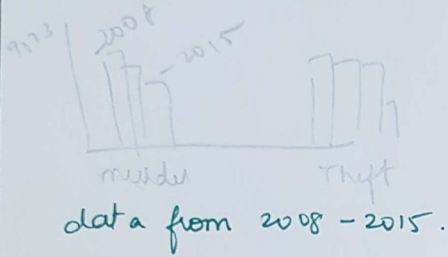 2008
2015
murder Theft
data from 2008 - 2015.